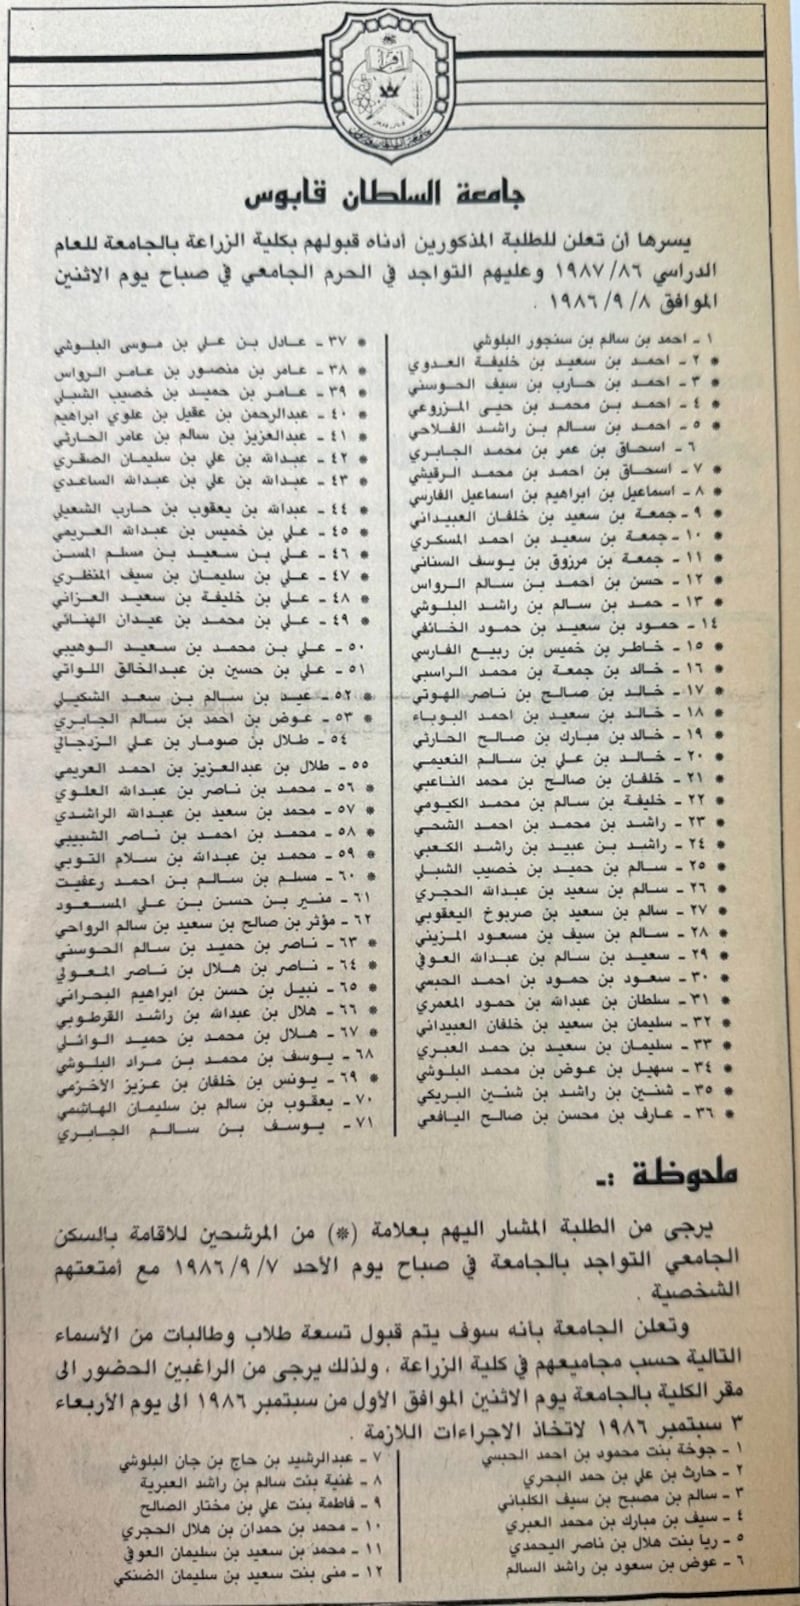 اقرأ
جامعة السلطان قابوس
يسرها أن تعلن للطلبة المذكورين أدناه قبولهم بكلية الزراعة بالجامعة للعام
الدراسي ١٩٨٧/٨٦ وعليهم التواجد في الحرم الجامعي في صباح يوم الاثنين
الموافق ١٩٨٦/٩/٨ .
١ - احمد بن سالم بن سنجور البلوشي
* ٢ - احمد بن سعيد بن خليفة العدوي
* ٣ - احمد بن حارب بن سيف الحوسني
* ٤ - احمد بن محمد بن حيي المزروعي
* ٥ - احمد بن سالم بن راشد الفلاحي
٦ - اسحاق بن عمر بن محمد الجابري
* ٧ - اسحاق بن احمد بن محمد الرقيشي
* ٨ - اسماعيل بن ابراهيم بن اسماعيل الفارسي
* ٩ - جمعة بن سعيد بن خلفان العبيداني
* ١٠ - جمعة بن سعيد بن احمد المسكري
* ١١ - جمعة بن مرزوق بن يوسف السناني
* ١٢ - حسن بن احمد بن سالم الرواس
* ١٣ - حمد بن سالم بن راشد البلوشي
١٤ - حمود بن سعيد بن حمود الخائفي
* ١٥ - خاطر بن خميس بن ربيع الفارسي
* ١٦ - خالد بن جمعة بن محمد الراسبي
* ١٧ - خالد بن صالح بن ناصر الهوتي
* ١٨ - خالد بن سعيد بن احمد البوباء
* ١٩ - خالد بن مبارك بن صالح الحارثي
* ٢٠ - خالد بن علي بن سالم النعيمي
* ٢١ - خلفان بن صالح بن محمد الناعبي
* ٢٢ - خليفة بن سالم بن محمد الكيومي
* ٢٣ - راشد بن محمد بن احمد الشحي
* ٢٤ - راشد بن عبيد بن راشد الكعبي
* ٢٥ - سالم بن حميد بن خصيب الشبلي
* ٢٦ - سالم بن سعيد بن عبدالله الحجري
* ٢٧ - سالم بن سعيد بن صربوخ اليعقوبي
* ٢٨ - سالم بن سيف بن مسعود المزيني
* ٢٩ - سعيد بن سالم بن عبدالله العوفي
* ٣٠ - سعود بن حمود بن احمد الحبسي
* ٣١ - سلطان بن عبدالله بن حمود المعمري
* ٣٢ - سليمان بن سعيد بن خلفان العبيداني
* ٣٣ - سليمان بن سعيد بن حمد العبري
* ٣٤ - سهيل بن عوض بن محمد البلوشي
* ٣٥ - شنين بن راشد بن شنين البريكي
* ٣٦ - عارف بن محسن بن صالح اليافعي
* ٣٧ - عادل بن علي بن موسى البلوشي
* ٣٨ - عامر بن منصور بن عامر الرواس
* ٣٩ - عامر بن حميد بن خصيب الشبلي
* ٤٠ - عبدالرحمن بن عقيل بن علوي ابراهيم
* ٤١ - عبدالعزيز بن سالم بن عامر الحارثي
* ٤٢ - عبدالله بن علي بن سليمان الصقري
* ٤٣ - عبدالله بن علي بن عبدالله الساعدي
* ٤٤ - عبدالله بن يعقوب بن حارب الشعيلي
* ٤٥ - علي بن خميس بن عبدالله العريمي
* ٤٦ - علي بن سعيد بن مسلم المسن
* ٤٧ - علي بن سليمان بن سيف المنظري
* ٤٨ - علي بن خليفة بن سعيد العزاني
* ٤٩ - علي بن محمد بن عيدان الهنائي
٥٠ - علي بن محمد بن سعيد الوهيبي
٥١ - علي بن حسين بن عبدالخالق اللواتي
* ٥٢ - عيد بن سالم بن سعد الشكيلي
* ٥٣ - عوض بن احمد بن سالم الجابري
٥٤ - طلال بن صومار بن علي الزدجالي
٥٥ - طلال بن عبدالعزيز بن احمد العريمي
* ٥٦ - محمد بن ناصر بن عبدالله العلوي
* ٥٧ - محمد بن سعيد بن عبدالله الراشدي
* ٥٨ - محمد بن احمد بن ناصر الشبيبي
* ٥٩ - محمد بن عبدالله بن سلام التوبي
* ٦٠ - مسلم بن سالم بن احمد رعفيت
٦١ - منير بن حسن بن علي المسعود
٦٢ - مؤثر بن صالح بن سعيد بن سالم الرواحي
* ٦٣ - ناصر بن حميد بن سالم الحوسني
* ٦٤ - ناصر بن هلال بن ناصر المعولي
* ٦٥ - نبيل بن حسن بن ابراهيم البحراني
* ٦٦ - هلال بن عبدالله بن راشد القرطوبي
* ٦٧ - هلال بن محمد بن حميد الوائلي
٦٨ - يوسف بن محمد بن مراد البلوشي
* ٦٩ - يونس بن خلفان بن عزيز الاخزمي
٧٠ - يعقوب بن سالم بن سليمان الهاشمي
٧١ - يوسف بن سالم الجابري
ملحوظة :-
يرجى من الطلبة المشار اليهم بعلامة (*) من المرشحين للاقامة بالسكن
الجامعي التواجد بالجامعة في صباح يوم الأحد ١٩٨٦/٩/٧ مع أمتعتهم
الشخصية .
وتعلن الجامعة بانه سوف يتم قبول تسعة طلاب وطالبات من الأسماء
التالية حسب مجاميعهم في كلية الزراعة ، ولذلك يرجى من الراغبين الحضور الى
مقر الكلية بالجامعة يوم الاثنين الموافق الأول من سبتمبر ١٩٨٦ الى يوم الأربعاء
٣ سبتمبر ١٩٨٦ لاتخاذ الاجراءات اللازمة .
١ - جوخة بنت محمود بن احمد الحبسي
٢ - حارث بن علي بن حمد البحري
٣ - سالم بن مصبح بن سيف الكلباني
٤ - سيف بن مبارك بن محمد العبري
٥ - ريا بنت هلال بن ناصر اليحمدي
٦ - عوض بن سعود بن راشد السالم
٧ - عبدالرشيد بن حاج بن جان البلوشي
٨ - غنية بنت سالم بن راشد العبرية
٩ - فاطمة بنت علي بن مختار الصالح
١٠ - محمد بن حمدان بن هلال الحجري
١١ - محمد بن سعيد بن سليمان العوفي
١٢ - منى بنت سعيد بن سليمان الضنكي